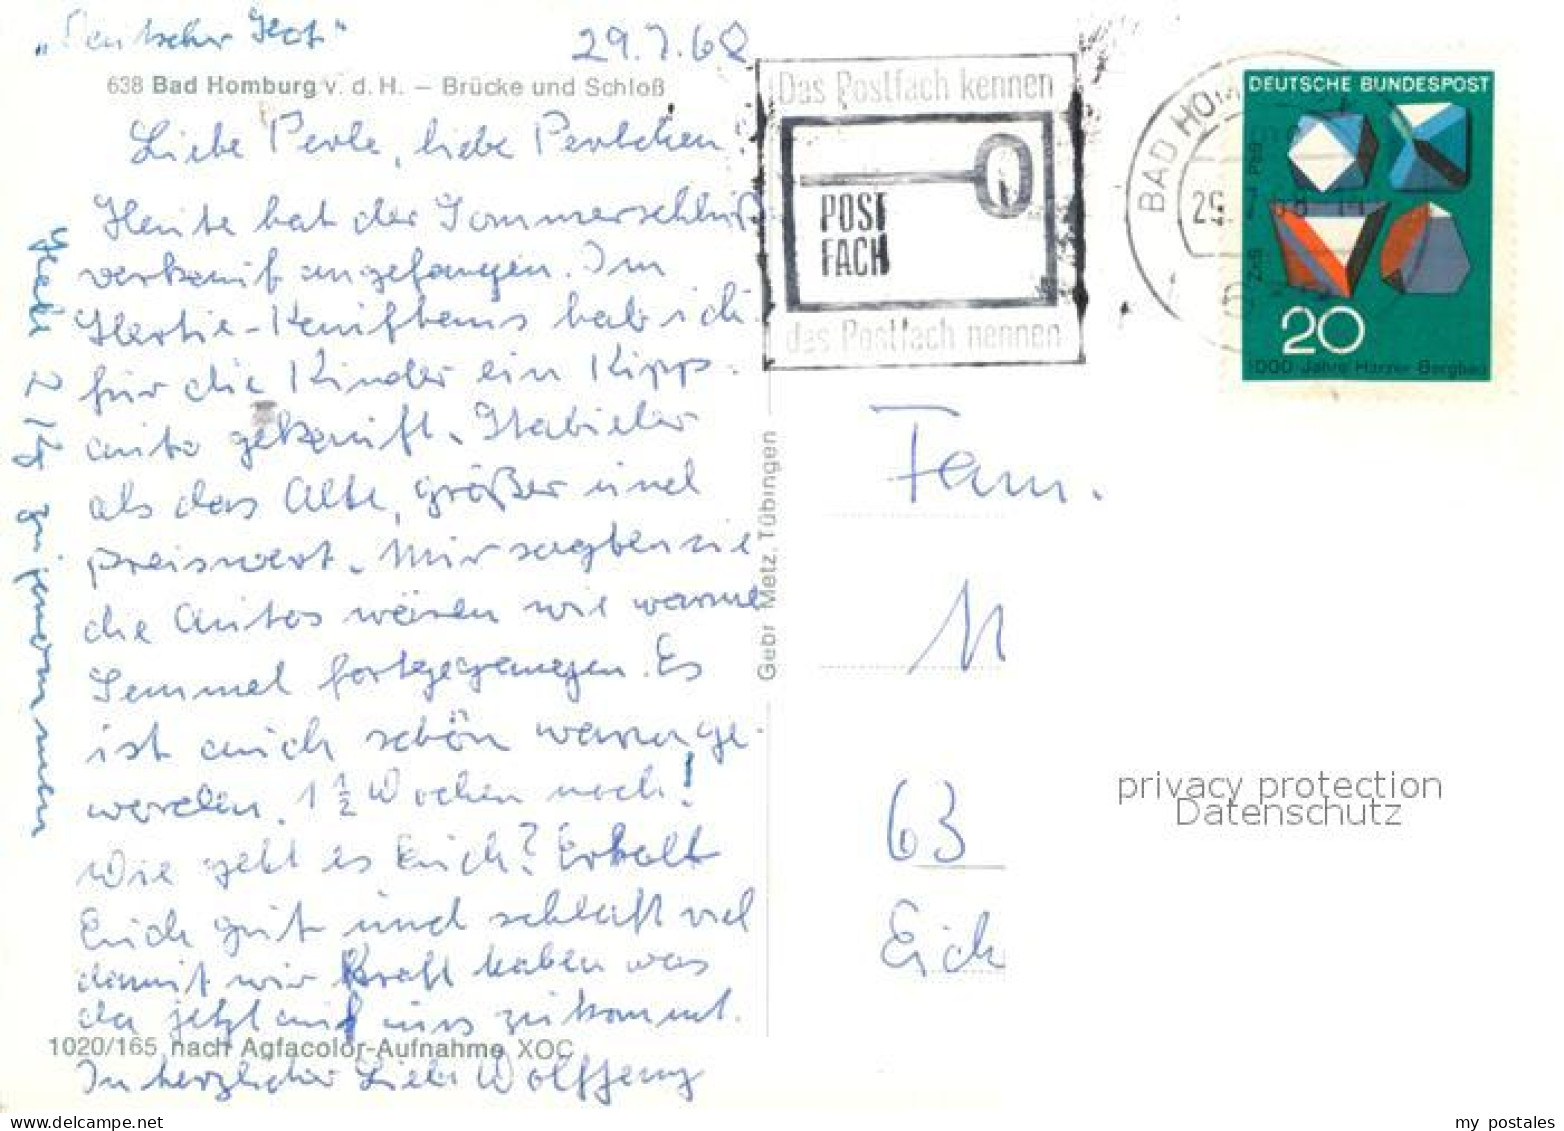 „Deutscher Hof"
29.7.68
638 Bad Homburg v. d. H. – Brücke und Schloß
Liebe Perle, liebe Perlchen
Heute hat der Sommerschluß
verkauf angefangen. Im
Hertie-Kaufhaus hab ich
für die Kinder ein Kipp-
auto gekauft. Stabieler
als das Alte, größer und
preiswert. Mir sagten sie
die Autos wären wie warme
Semmel fortgegangen. Es
ist auch schön warm ge-
worden. 1 1/2 Wochen noch!
Wie geht es Euch? Erholt
Euch gut und schlaft viel
damit wir Kraft haben was
da jetzt auf uns zukommt.
In herzlicher Liebe Wolfgang
1020/165 nach Agfacolor-Aufnahme XOC
zugenommen
Gebr. Metz, Tübingen
Das Postfach kennen
POST
FACH
das Postfach nennen
BAD HOM
29.7.68
DEUTSCHE BUNDESPOST
PbS
ZnS
20
1000 Jahre Harzer Bergbau
Fam.
M
63
Eich
privacy protection
Datenschutz
my postales
delcampe.net